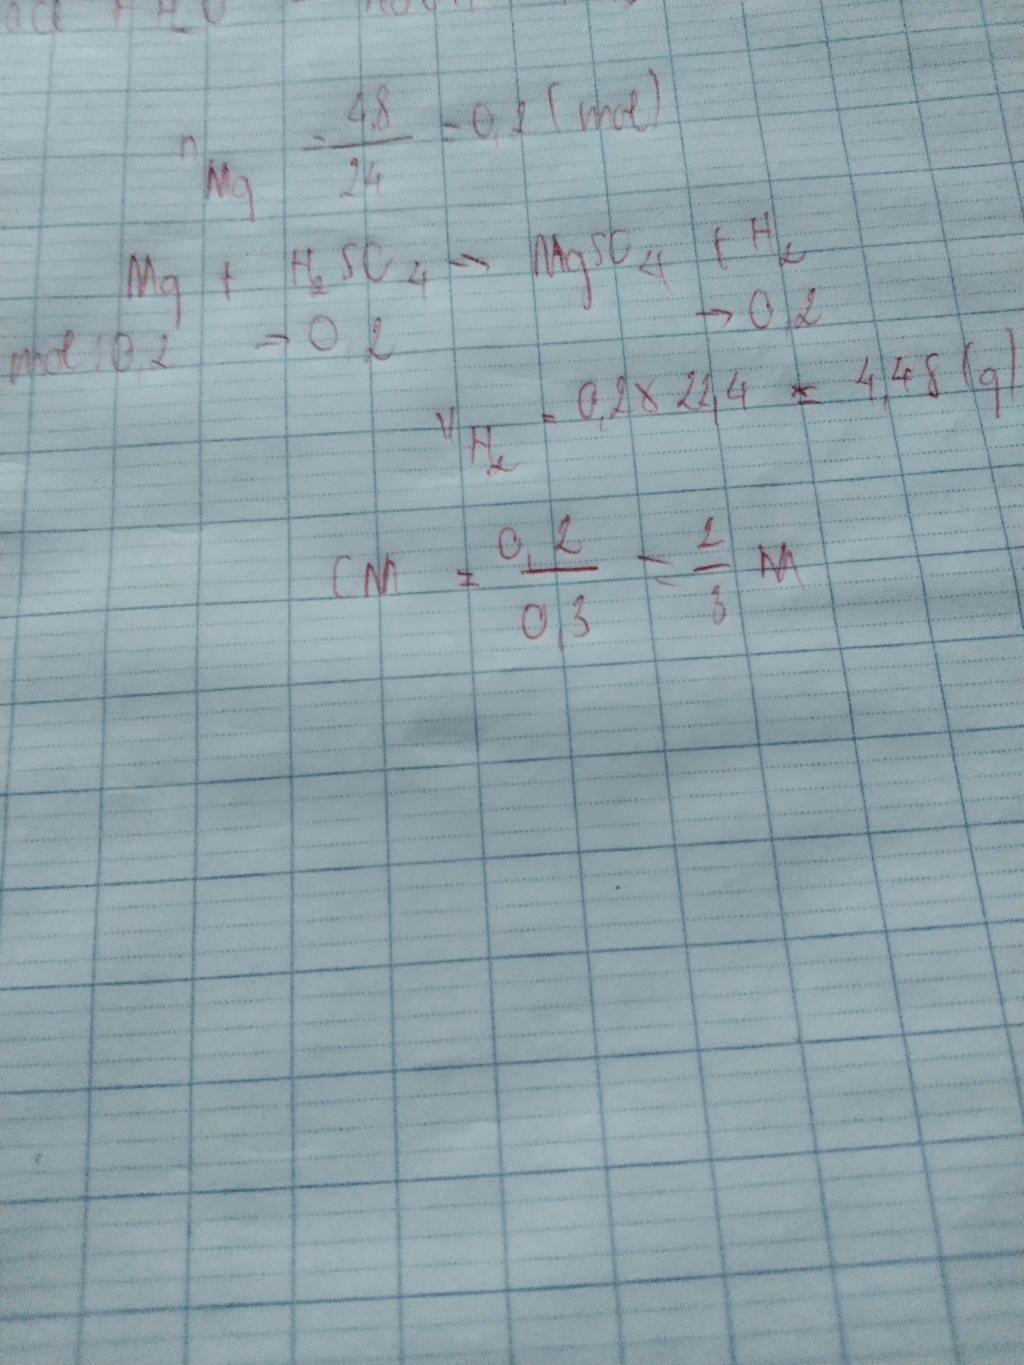 n Mg = 4,8 / 24 = 0,2 (mol)
Mg + H₂SO₄ → MgSO₄ + H₂
mol: 0,2 → 0,2 → 0,2
V H₂ = 0,2 x 22,4 = 4,48 (g)
CM = 0,2 / 0,3 = 2 / 3 M